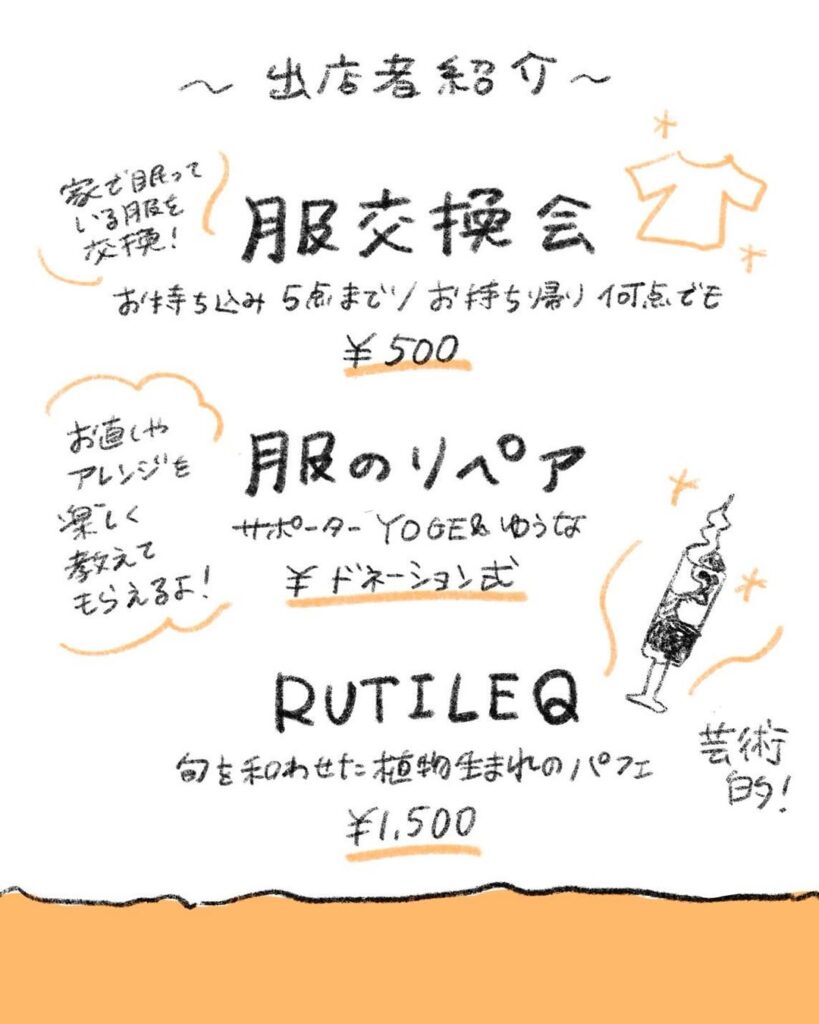 ～ 出店者紹介 ～
家で眠って
いる服を
交換！
服交換会
お持ち込み 5点まで / お持ち帰り 何点でも
¥500
お直しや
アレンジを
楽しく
教えて
もらえるよ！
服のリペア
サポーター YOGE& ゆうな
¥ ドネーション式
RUTILEQ
旬を和わせた植物生まれのパフェ
¥1,500
芸術
的！